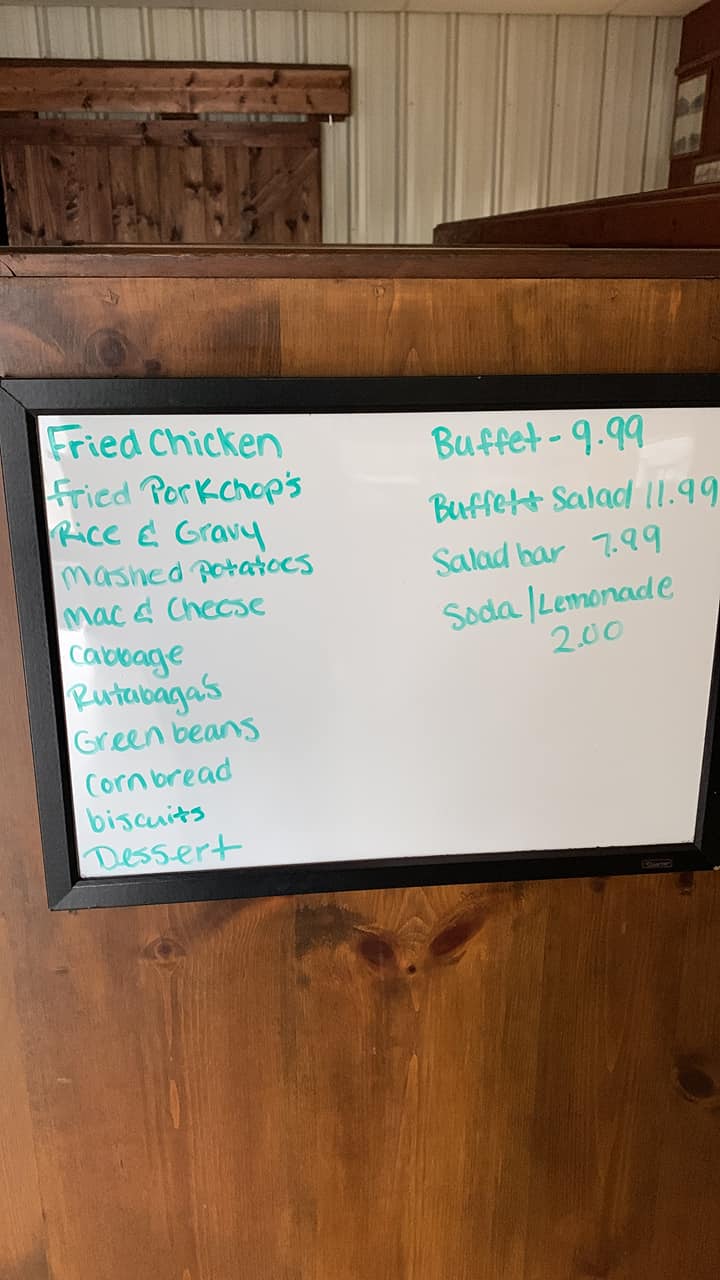 Fried Chicken
Fried Porkchop's
Rice & Gravy
Mashed Potatoes
Mac & Cheese
Cabbage
Rutabaga's
Green beans
Cornbread
biscuits
Dessert
Buffet - 9.99
Buffet + Salad 11.99
Salad bar 7.99
Soda/Lemonade
2.00